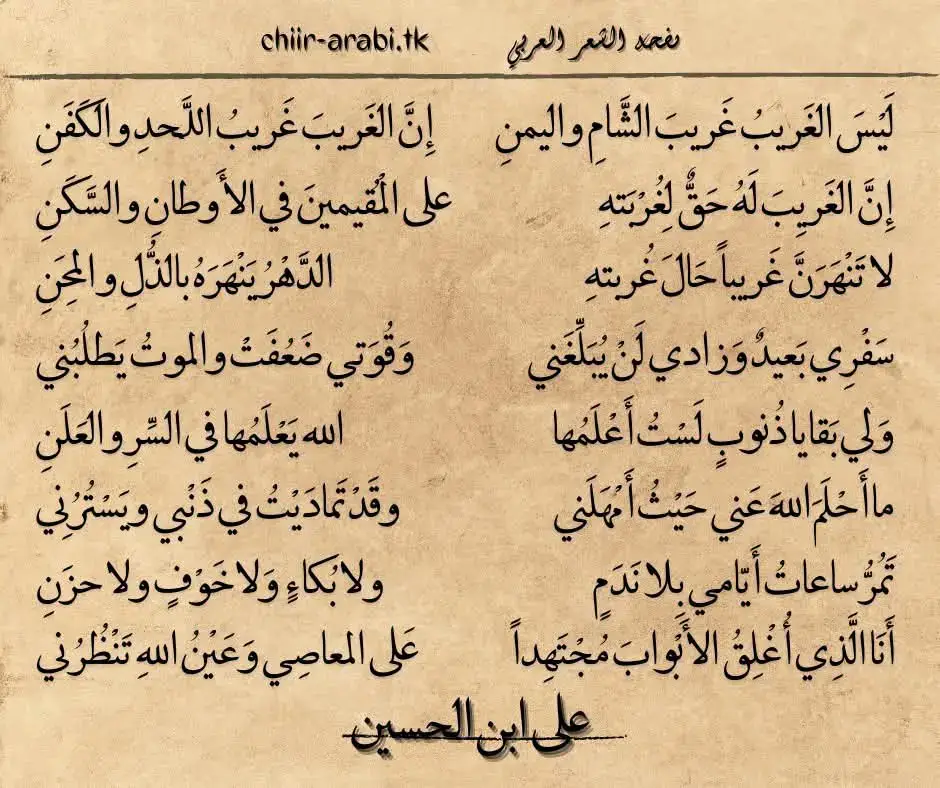 نفحه الشعر العربي chiir-arabi.tk
لَيْسَ الغَريبُ غَريبَ الشَّامِ واليمنِ إِنَّ الغَريبَ غَريبُ اللَّحدِ والكَفَنِ
إِنَّ الغَريِبَ لَهُ حَقٌّ لِغُرْبَتهِ على الْمُقيمينَ في الأَوطانِ والسَّكَنِ
لا تَنْهَرَنَّ غَريباً حَالَ غُربتهِ الدَّهْرُ يَنْهَرَهُ بالذُّلِ والمِحَنِ
سَفْرِي بَعيدٌ وَزادي لَنْ يُبَلِّغَني وَقُوَتي ضَعُفَتْ والموتُ يَطلُبُني
وَلي بَقايا ذُنوبٍ لَسْتُ أَعْلَمُها الله يَعْلَمُها في السِّرِ والعَلَنِ
ما أَحْلَمَ اللهَ عَني حَيْثُ أَمْهَلَني وقَدْ تَمادَيْتُ في ذَنْبي ويَسْتُرُنِي
تَمُرُّ ساعاتُ أَيّامي بِلا نَدَمٍ ولا بُكاءٍ وَلا خَوْفٍ ولا حزَنِ
أَنَا الَّذِي أُغْلِقُ الأَبْوابَ مُجْتَهِداً عَلى المعاصِي وَعَيْنُ اللهِ تَنْظُرُني
على ابن الحسين